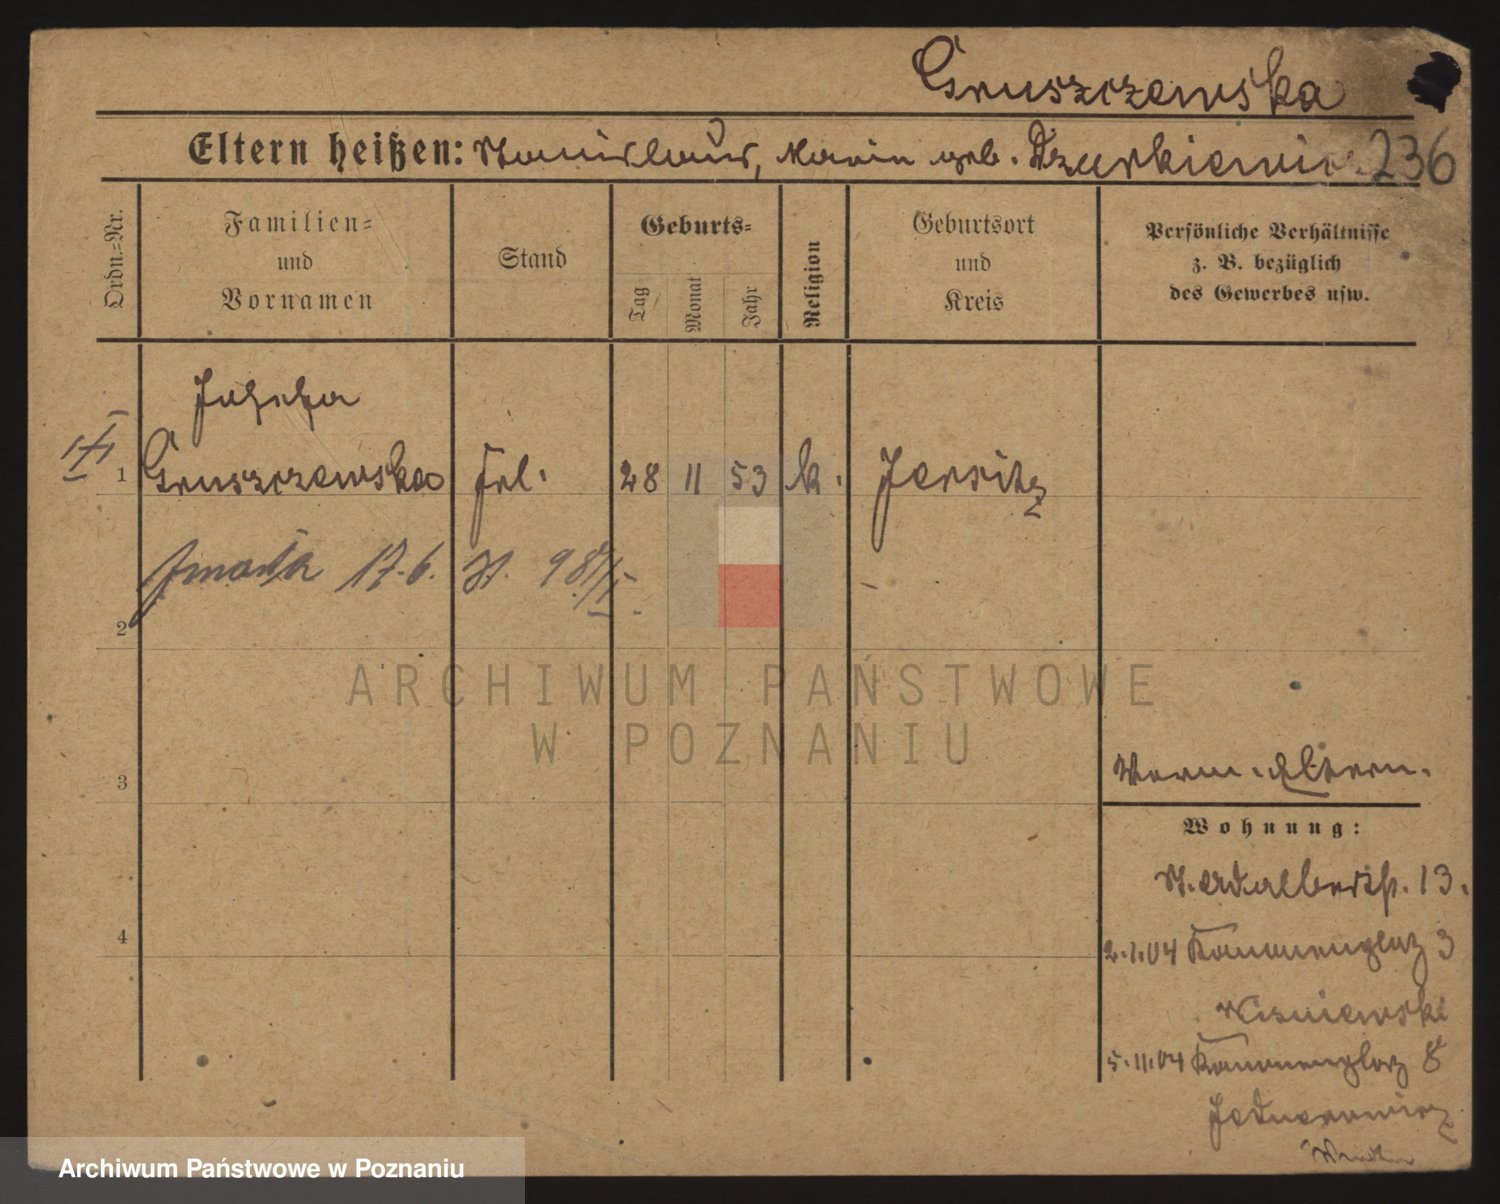 Gruszczewska
Eltern heißen: Stanislaus, Marie geb.
236
Ordn.-Nr.
Familien-
und
Vornamen
Stand
Geburts-
Tag
Monat
Jahr
Religion
Geburtsort
und
Kreis
Persönliche Verhältnisse
z. B. bezüglich
des Gewerbes usw.
Josefa
1 Gruszczewska Frl. 28 11 53 k. Jersitz
17.6.
2
ARCHIWUM PAŃSTWOWE
W POZNANIU
3
Eltern.
Wohnung:
St. Adalbertstr. 13.
4
2.1.04 Kanonenplatz 3
Wisniewski
5.11.04 Kanonenplatz 8
Archiwum Państwowe w Poznaniu